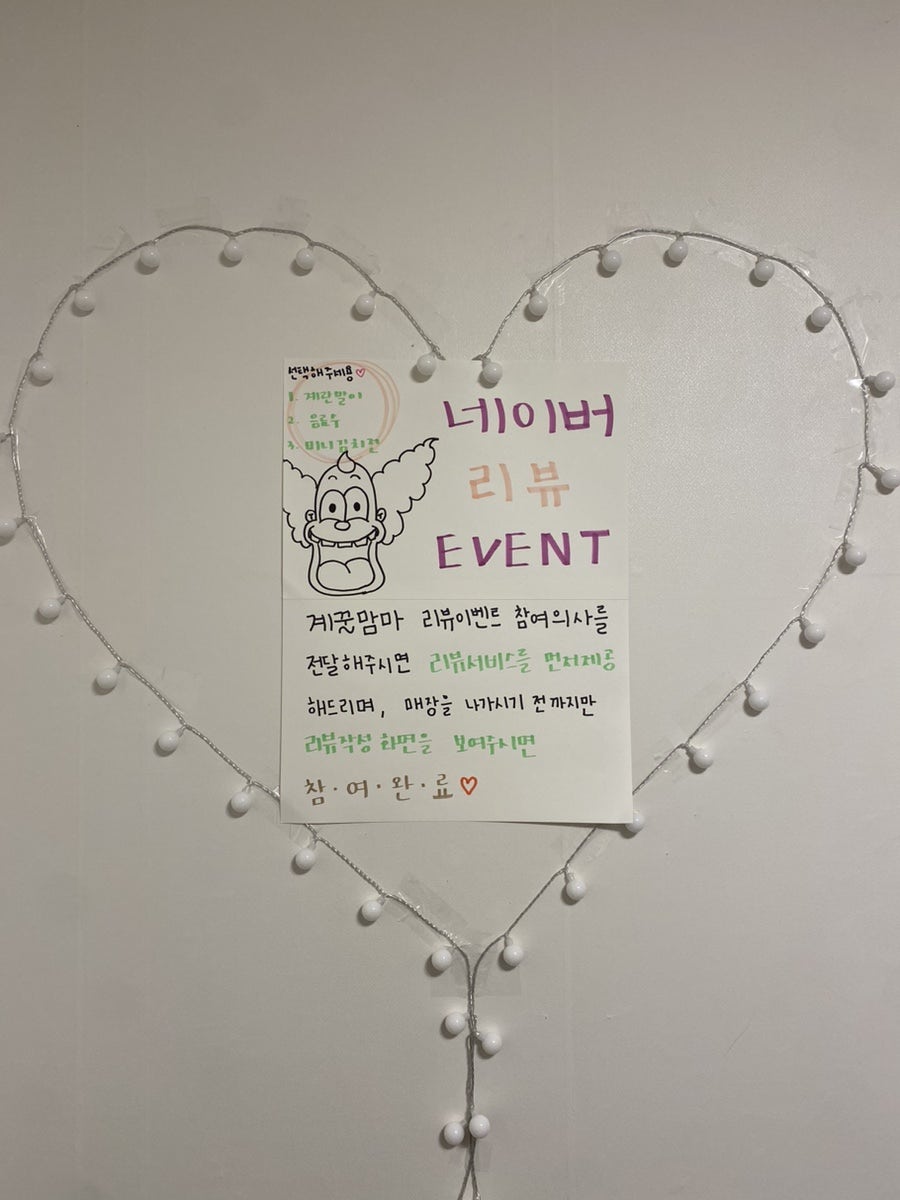 선택해주세용♡
1. 계란말이
2. 음료수
3. 미니김치전
네이버
리뷰
EVENT
계꿍맘마 리뷰이벤트 참여의사를
전달해주시면 리뷰서비스를 먼저제공
해드리며, 매장을 나가시기 전까지만
리뷰작성 화면을 보여주시면
참·여·완·료♡